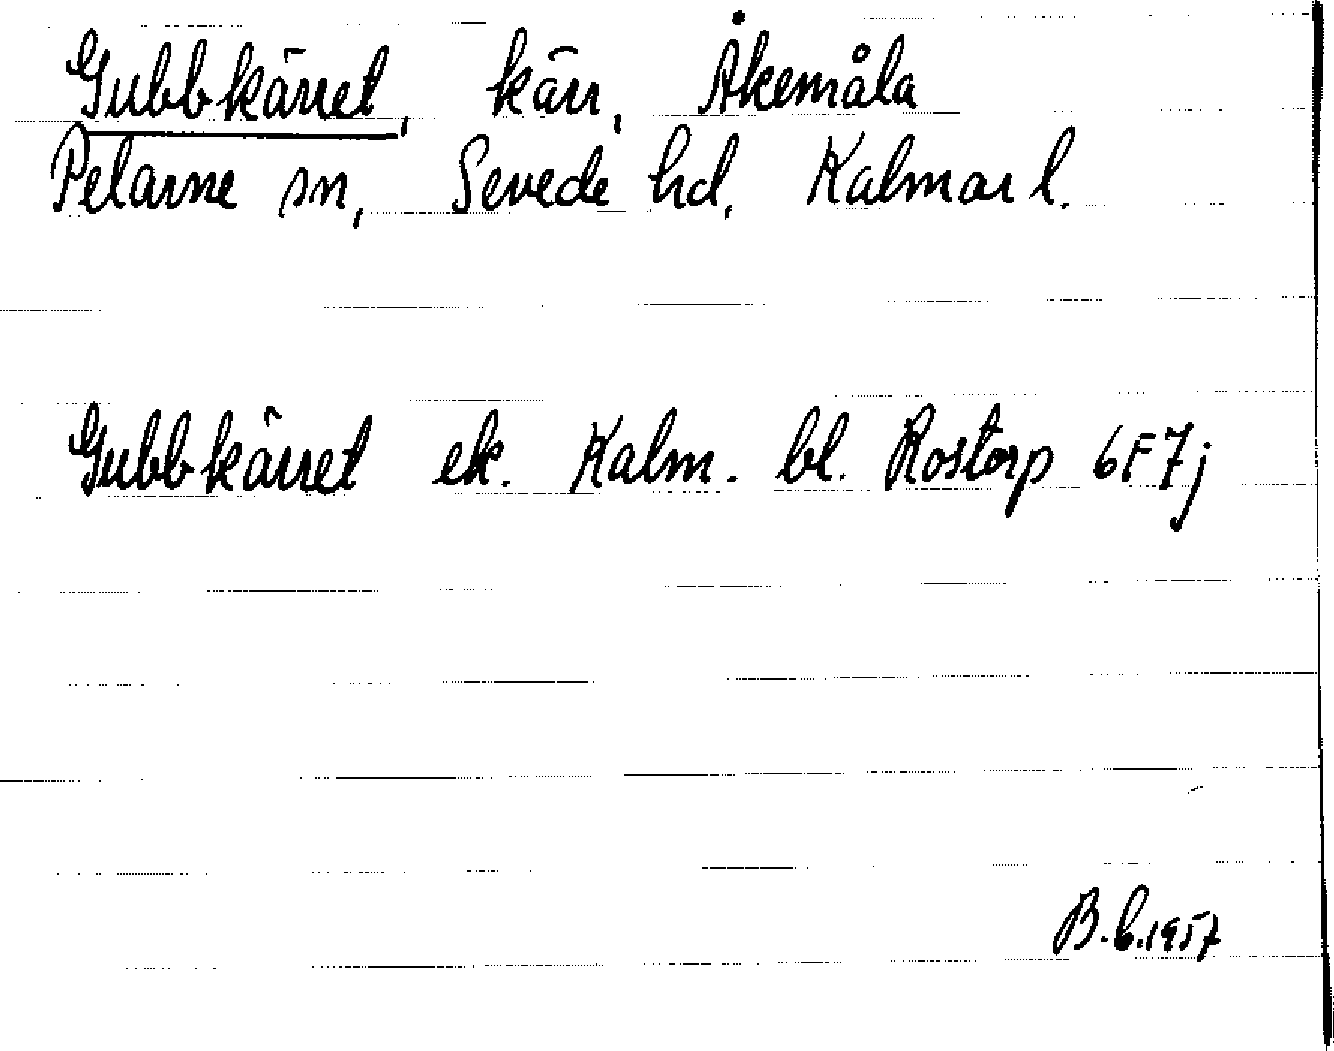 Gubbkärret, kärr, Åkemåla
Pelarne sn, Sevede hd, Kalmar l.
Gubbkärret ek. Kalm. bl. Rostorp 6F7j
B.b.1957